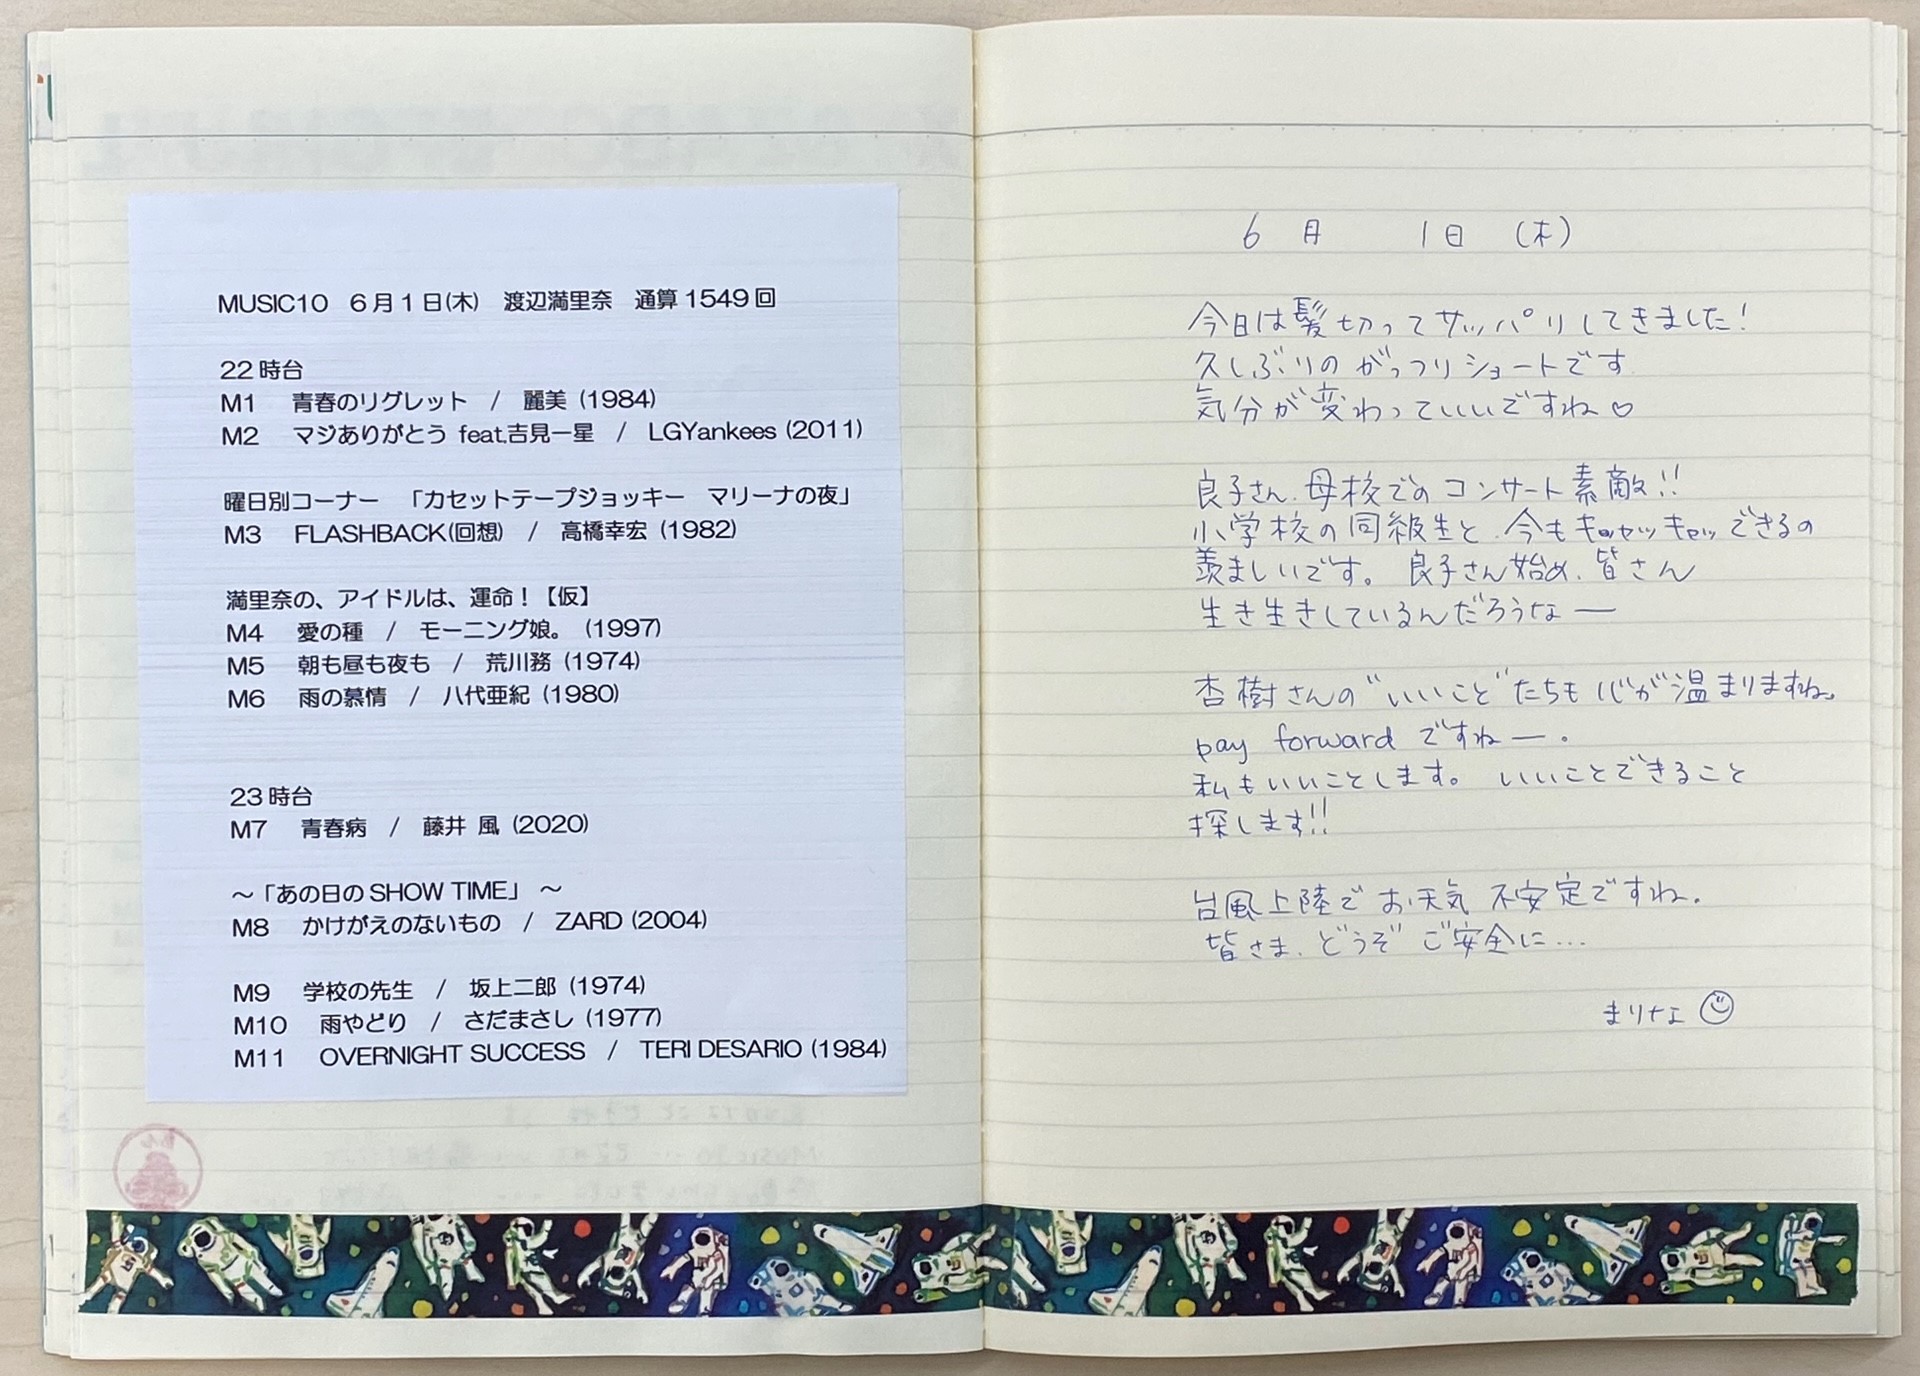 MUSIC10　6月1日(木)　渡辺満里奈　通算1549回
22時台
M1　青春のリグレット　/　麗美 (1984)
M2　マジありがとう feat.吉見一星　/　LGYankees (2011)
曜日別コーナー　「カセットテープジョッキー　マリーナの夜」
M3　FLASHBACK(回想)　/　高橋幸宏 (1982)
満里奈の、アイドルは、運命！【仮】
M4　愛の種　/　モーニング娘。 (1997)
M5　朝も昼も夜も　/　荒川務 (1974)
M6　雨の慕情　/　八代亜紀 (1980)
23時台
M7　青春病　/　藤井 風 (2020)
～「あの日のSHOW TIME」～
M8　かけがえのないもの　/　ZARD (2004)
M9　学校の先生　/　坂上二郎 (1974)
M10　雨やどり　/　さだまさし (1977)
M11　OVERNIGHT SUCCESS　/　TERI DESARIO (1984)
6月　1日　(木)
今日は髪切ってサッパリしてきました！
久しぶりのがっつりショートです
気分が変わっていいですね♡
良子さん、母校でのコンサート素敵!!
小学校の同級生と、今もキャッキャッできるの
羨ましいです。良子さん始め、皆さん
生き生きしているんだろうなー
杏樹さんの"いいこと"たちも心が温まりますね。
pay forward ですねー。
私もいいことします。いいことできること
探します!!
台風上陸でお天気不安定ですね。
皆さま、どうぞご安全に…
まりな